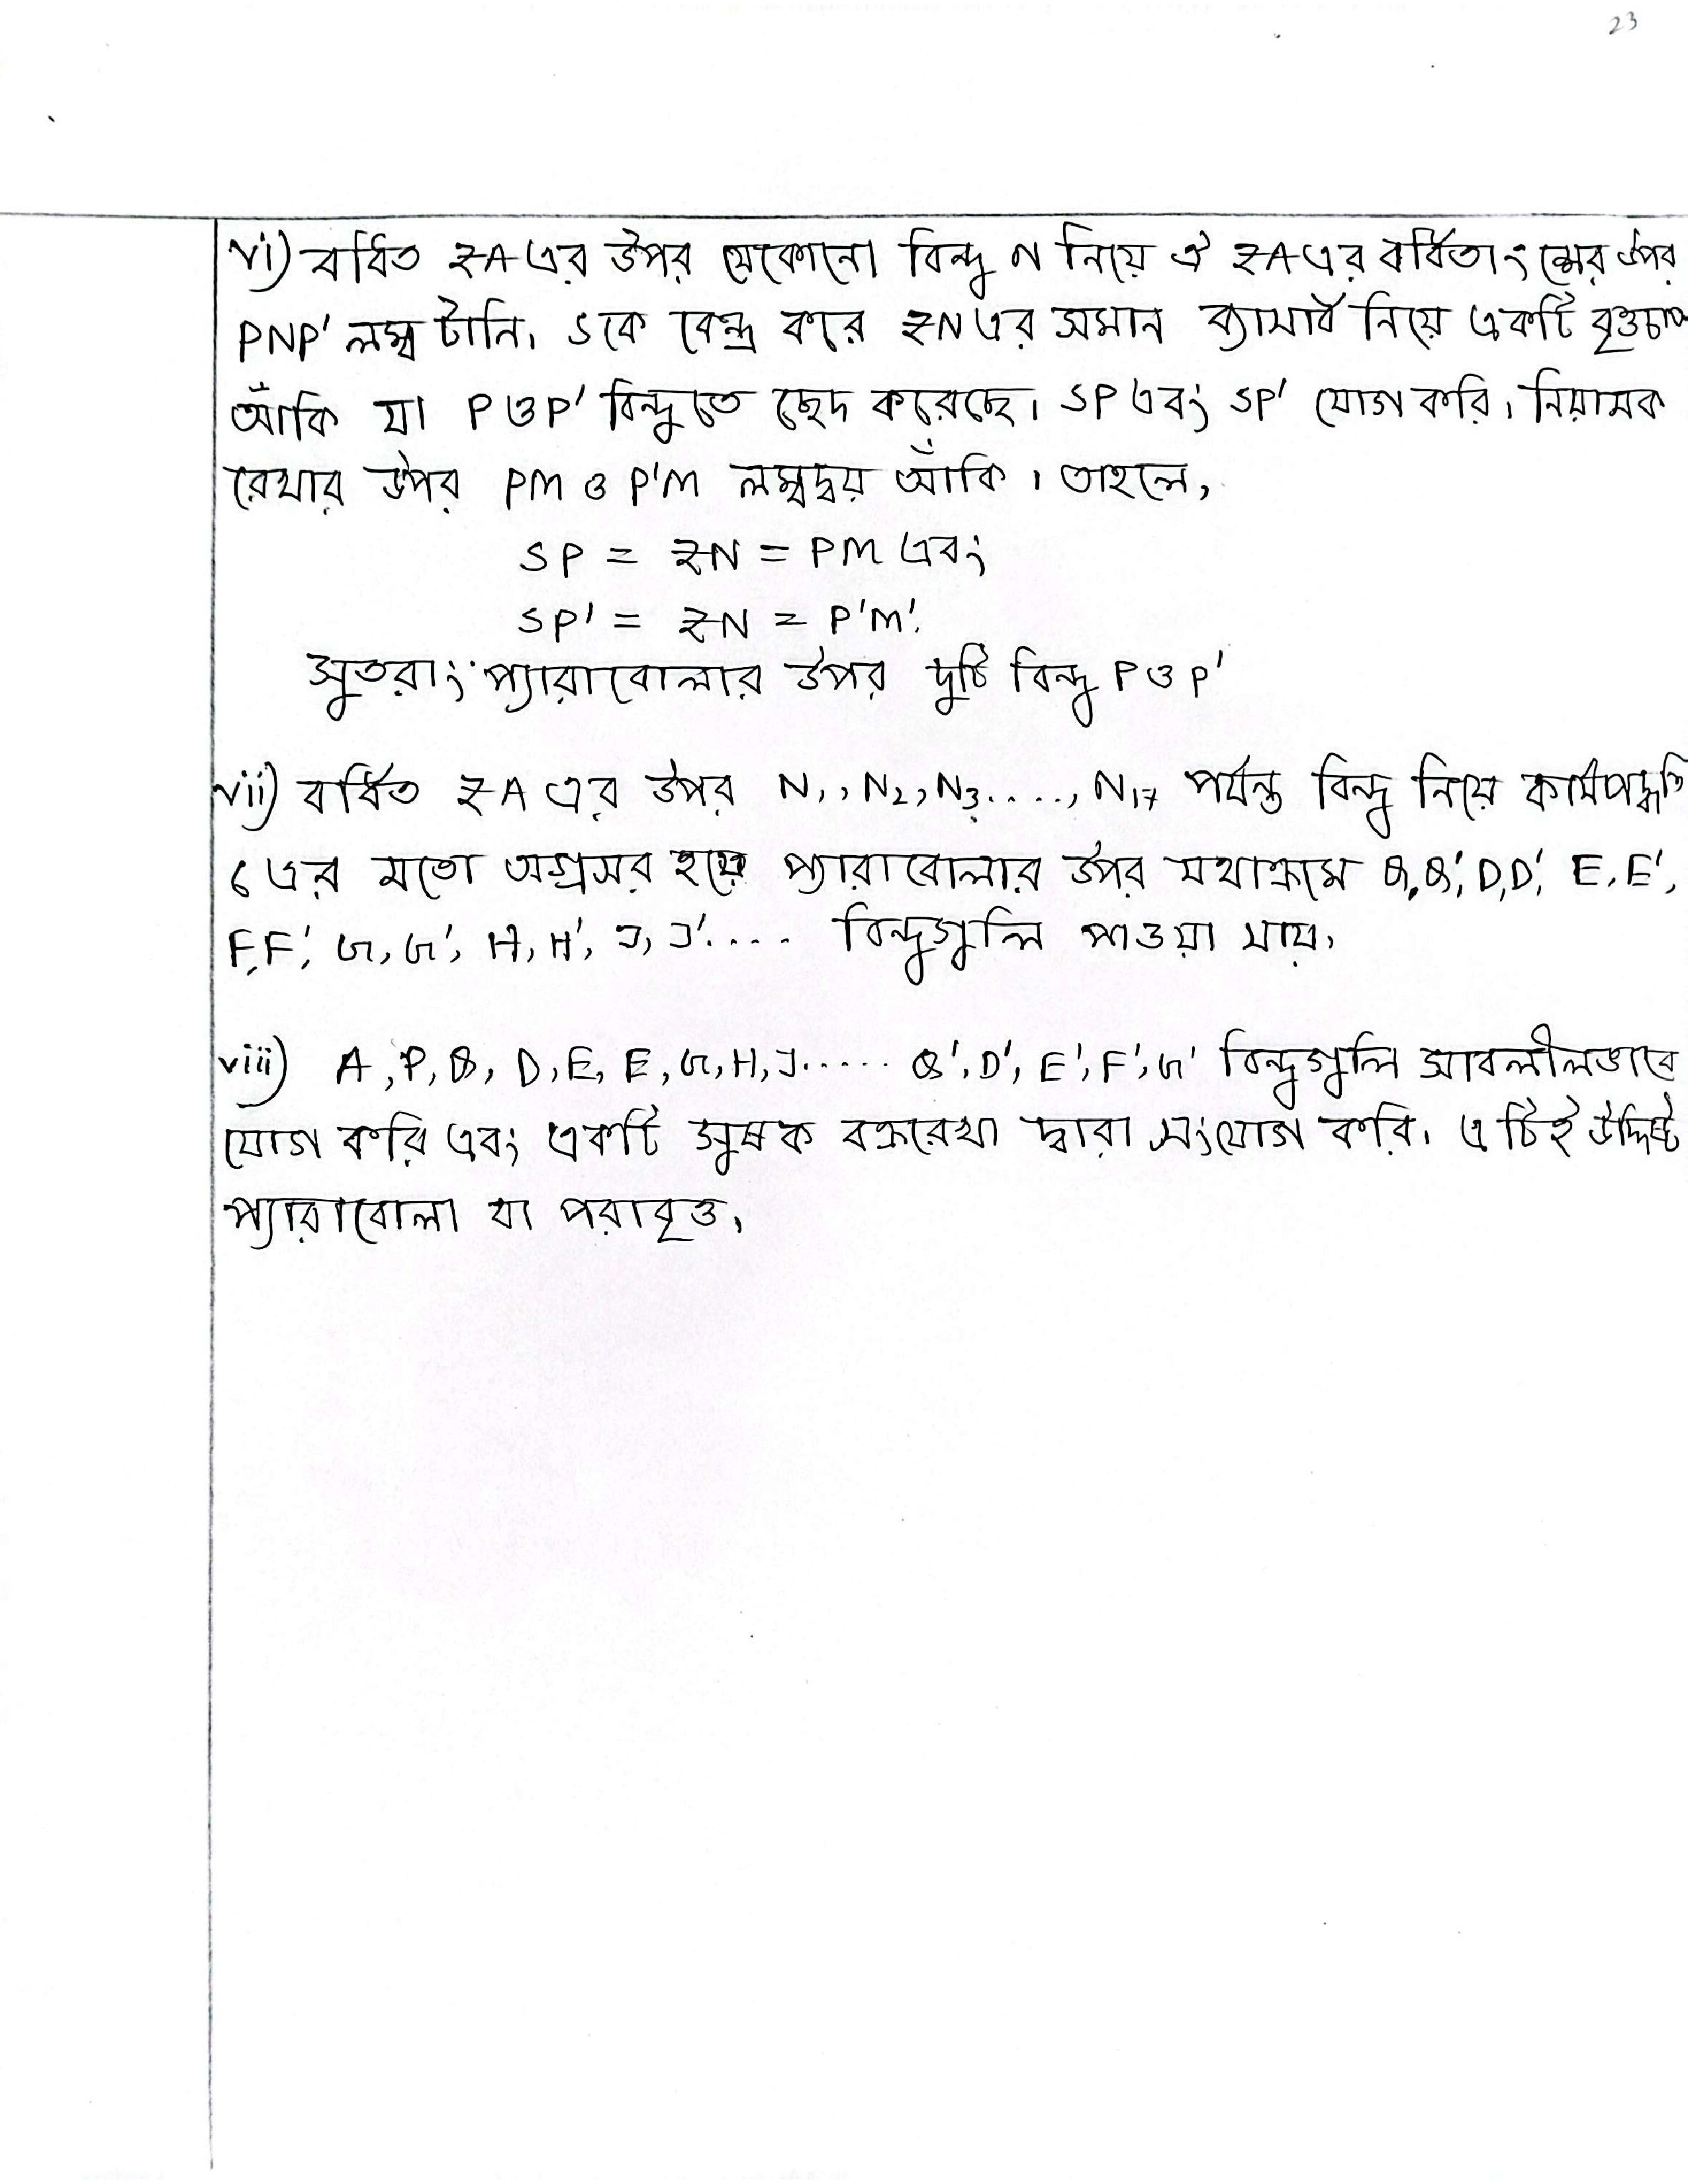 23
vi) বর্ধিত ZA এর উপর যেকোনো বিন্দু N নিয়ে ঐ ZA এর বর্ধিতাংশের উপর
PNP' লম্ব টানি। S কে কেন্দ্র করে ZN এর সমান ব্যাসার্ধ নিয়ে একটি বৃত্তচাপ
আঁকি যা P ও P' বিন্দুতে ছেদ করেছে। SP এবং SP' যোগ করি। নিয়ামক
রেখার উপর PM ও P'M লম্বদ্বয় আঁকি। তাহলে,
SP = ZN = PM এবং
SP' = ZN = P'M'.
সুতরাং প্যারাবোলার উপর দুটি বিন্দু P ও P'
vii) বর্ধিত ZA এর উপর N₁, N₂, N₃...., N₁₇ পর্যন্ত বিন্দু নিয়ে কার্যপদ্ধতি
৬ এর মতো অগ্রসর হয়ে প্যারাবোলার উপর যথাক্রমে Q, Q', D, D', E, E',
F, F', G, G', H, H', J, J'.... বিন্দুগুলি পাওয়া যায়।
viii) A, P, Q, D, E, E, G, H, J..... Q', D', E', F', G' বিন্দুগুলি সাবলীলভাবে
যোগ করি এবং একটি সুষক বক্ররেখা দ্বারা সংযোগ করি। এটিই উদ্দিষ্ট
প্যারাবোলা বা পরাবৃত্ত।